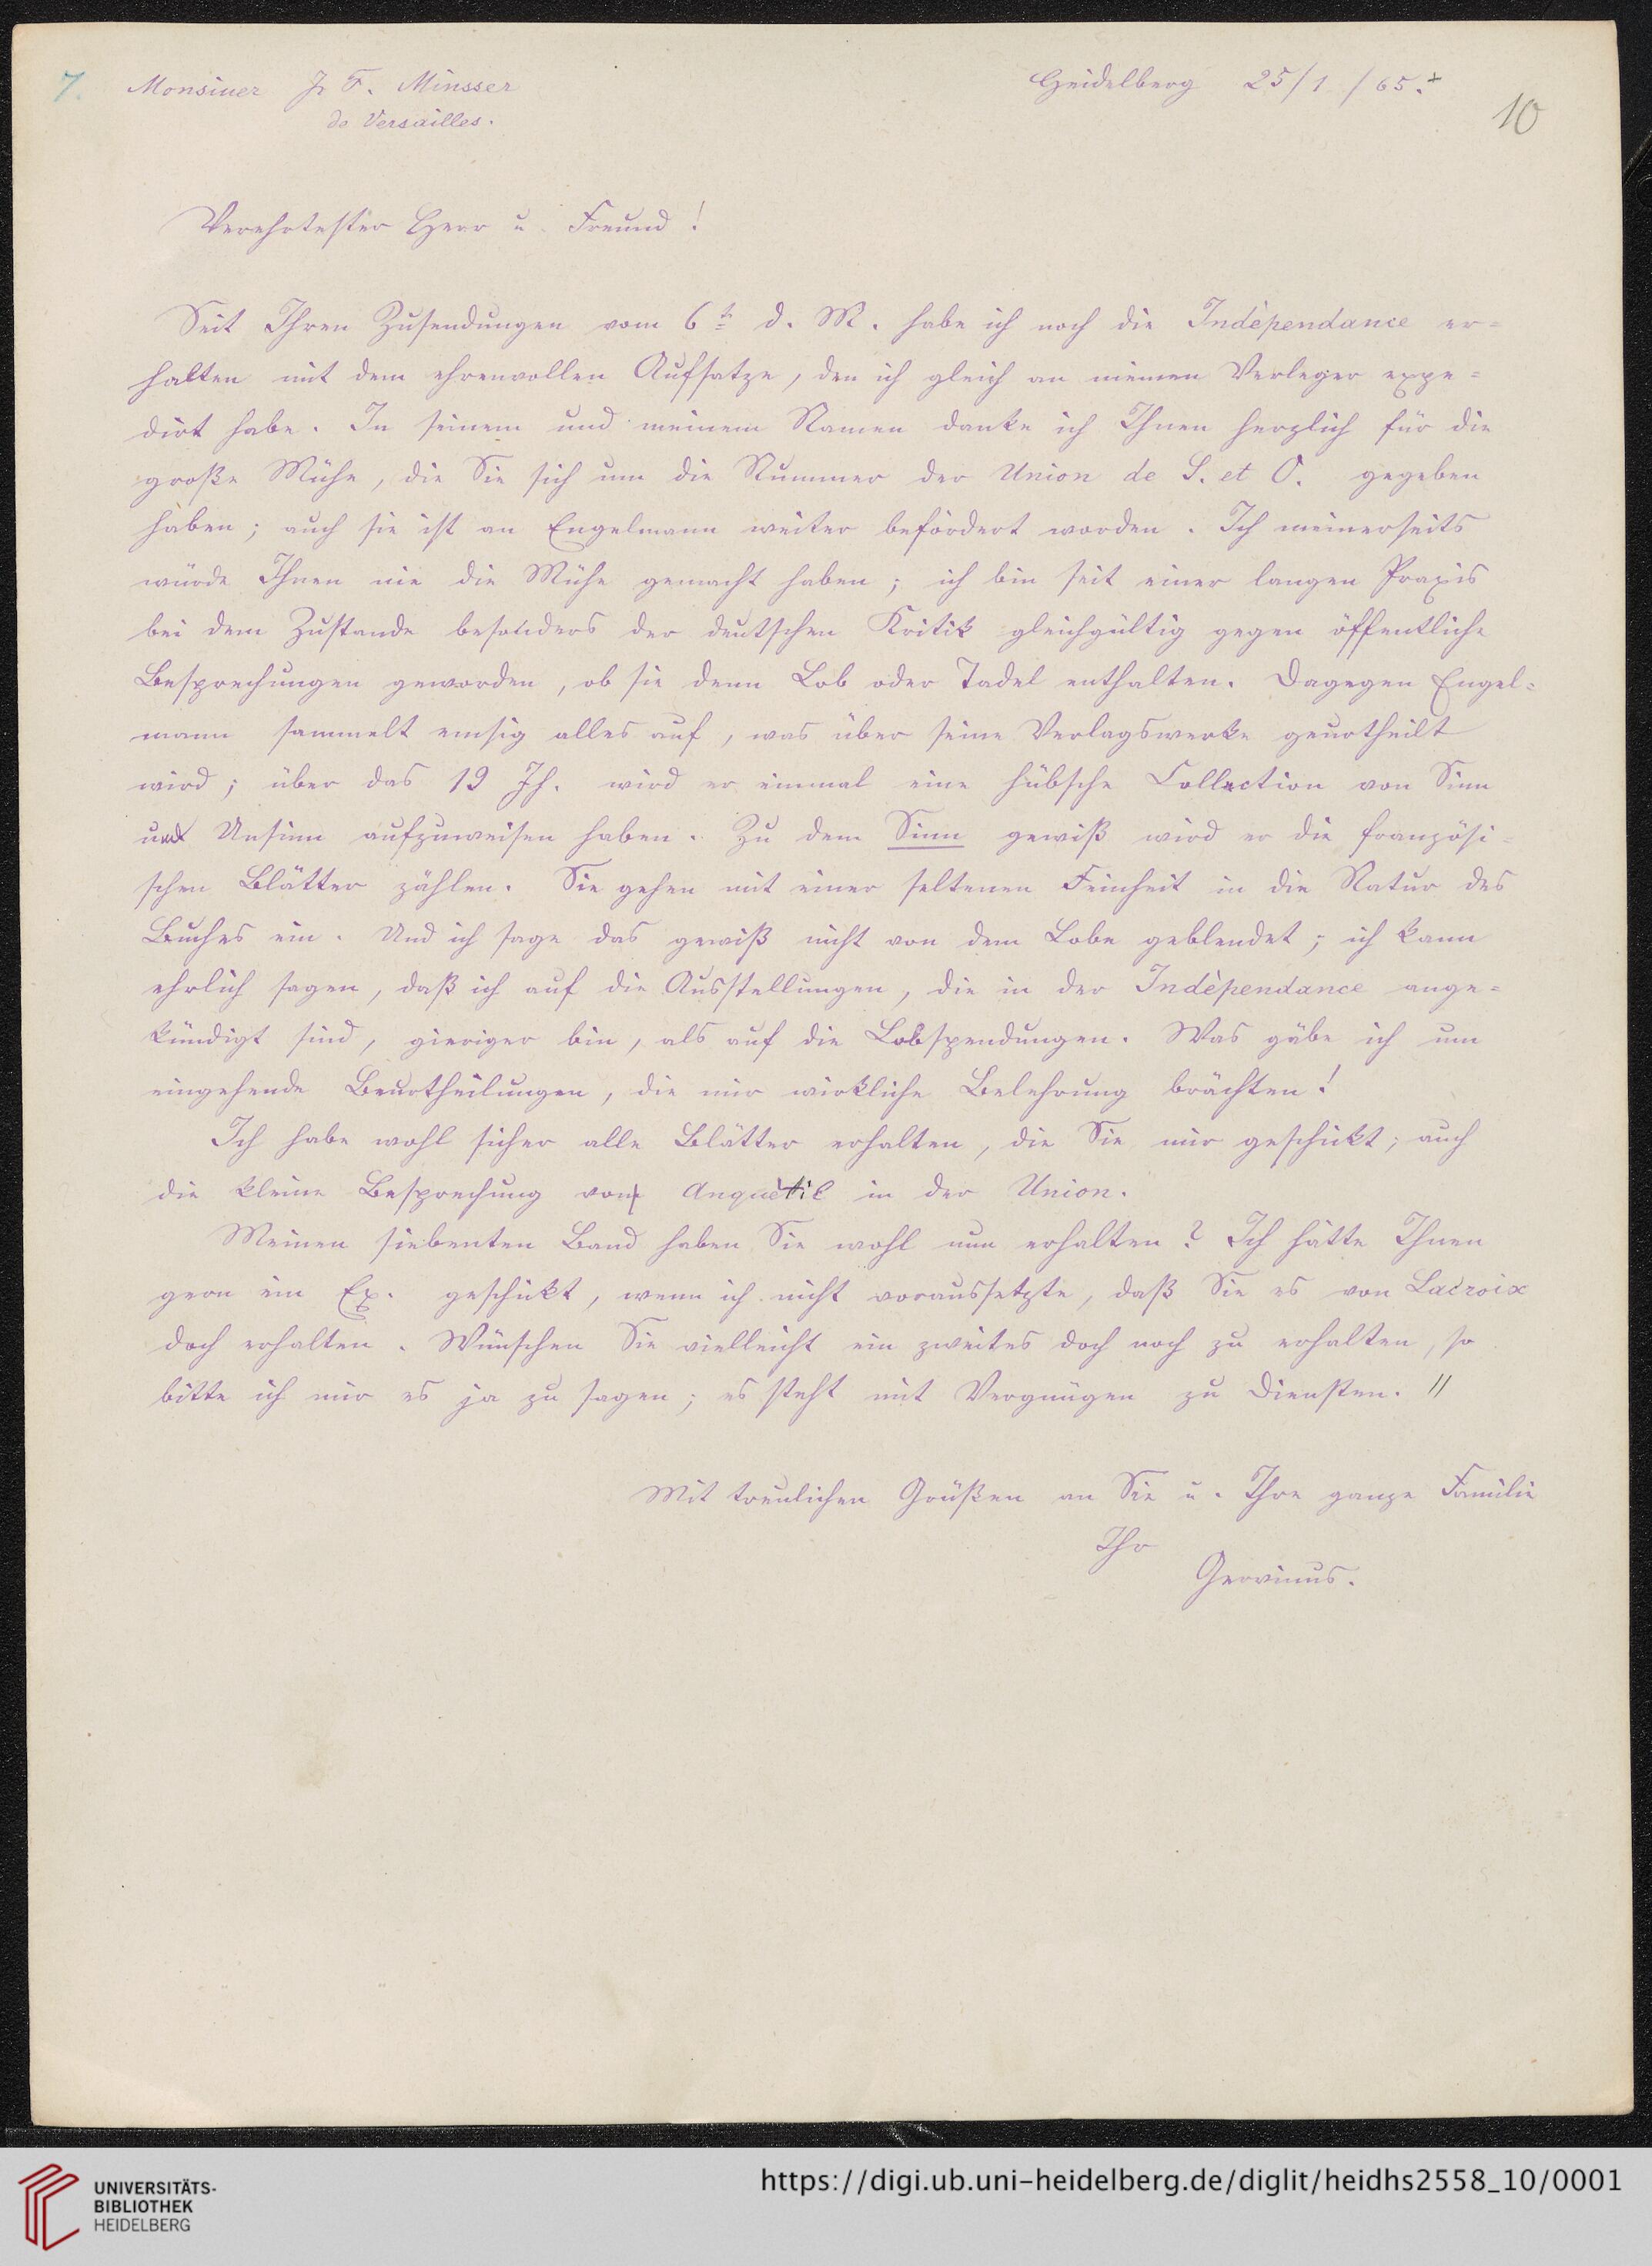 7. Monsiuer J. F. Minsser
Heidelberg 25/1 /65.+
de Versailles.
10
Verehrtester Herr u. Freund!
Seit Ihren Zusendungen vom 6t d. M. habe ich noch die Indèpendance er=
halten mit dem ehrenvollen Aufsatze, den ich gleich an meinen Verleger expe=
dirt habe. In seinem und meinem Namen danke ich Ihnen herzlich für die
große Mühe, die Sie sich um die Nummer der Union de S. et O. gegeben
haben; auch sie ist an Engelmann weiter befördert worden. Ich meinerseits
würde Ihnen nie die Mühe gemacht haben; ich bin seit einer langen Praxis
bei dem Zustande besonders der deutschen Kritik gleichgültig gegen öffentliche
Besprechungen geworden, ob sie denn Lob oder Tadel enthalten. Dagegen Engel=
mann sammelt emsig alles auf, was über seine Verlagswerke geurtheilt
wird; über das 19 Jh. wird er einmal eine hübsche Collection von Sinn
und Unsinn aufzuweisen haben. Zu dem Sinn gewiß wird er die französi=
schen Blätter zählen. Sie gehen mit einer seltenen Feinheit in die Natur des
Buches ein. Und ich sage das gewiß nicht von dem Lobe geblendet; ich kann
ehrlich sagen, daß ich auf die Ausstellungen, die in der Indèpendance ange=
kündigt sind, gieriger bin, als auf die Lobspendungen. Was gäbe ich um
eingehende Beurtheilungen, die mir wirkliche Belehrung brächten!
Ich habe wohl sicher alle Blätter erhalten, die Sie mir geschickt; auch
die kleine Besprechung von Anquètil in der Union.
Meinen siebenten Band haben Sie wohl nun erhalten? Ich hätte Ihnen
gern ein Ex. geschickt, wenn ich nicht voraussetzte, daß Sie es von Lacroix
doch erhalten. Wünschen Sie vielleicht ein zweites doch noch zu erhalten, so
bitte ich mir es ja zu sagen; es steht mit Vergnügen zu Diensten. //
Mit treulichen Grüßen an Sie u. Ihre ganze Familie
Ihr
Gervinus.
UNIVERSITÄTS-
BIBLIOTHEK
HEIDELBERG
https://digi.ub.uni-heidelberg.de/diglit/heidhs2558_10/0001